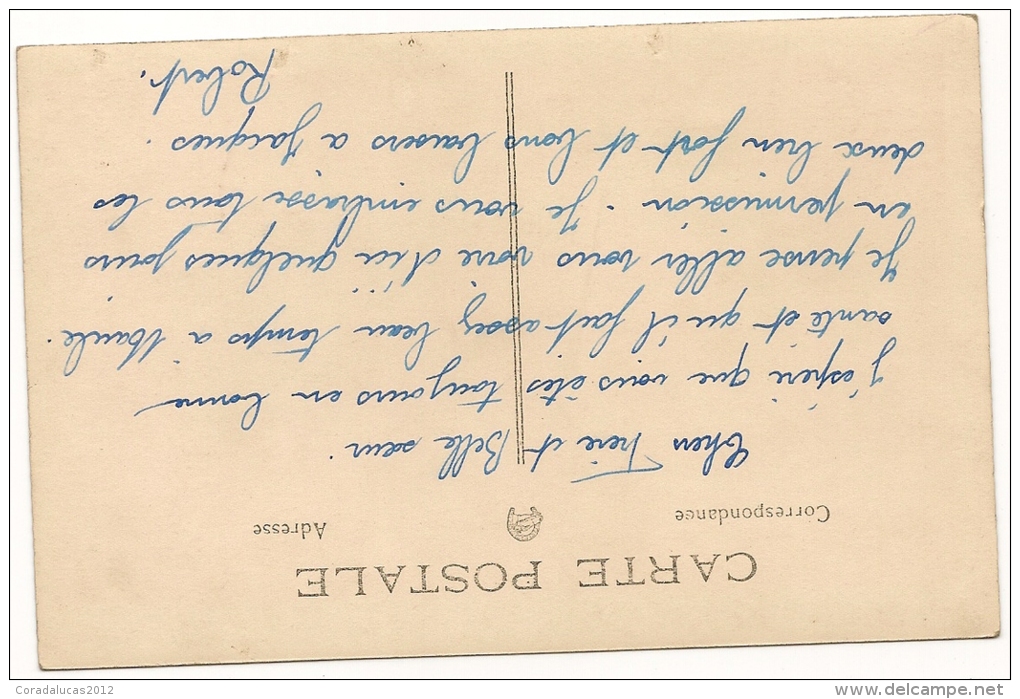 CARTE POSTALE
Correspondance
Adresse
Chers Frère et Belle sœur.
j'espère que vous êtes toujours en bonne
santé et qu'il fait assez beau temps a
Je pense aller vous voire d'ici quelques jours
en permission. Je vous embrasse tous les
deux bien fort et bons baisers a Jacques.
Robert.
Coradalucas2012
delcampe.net